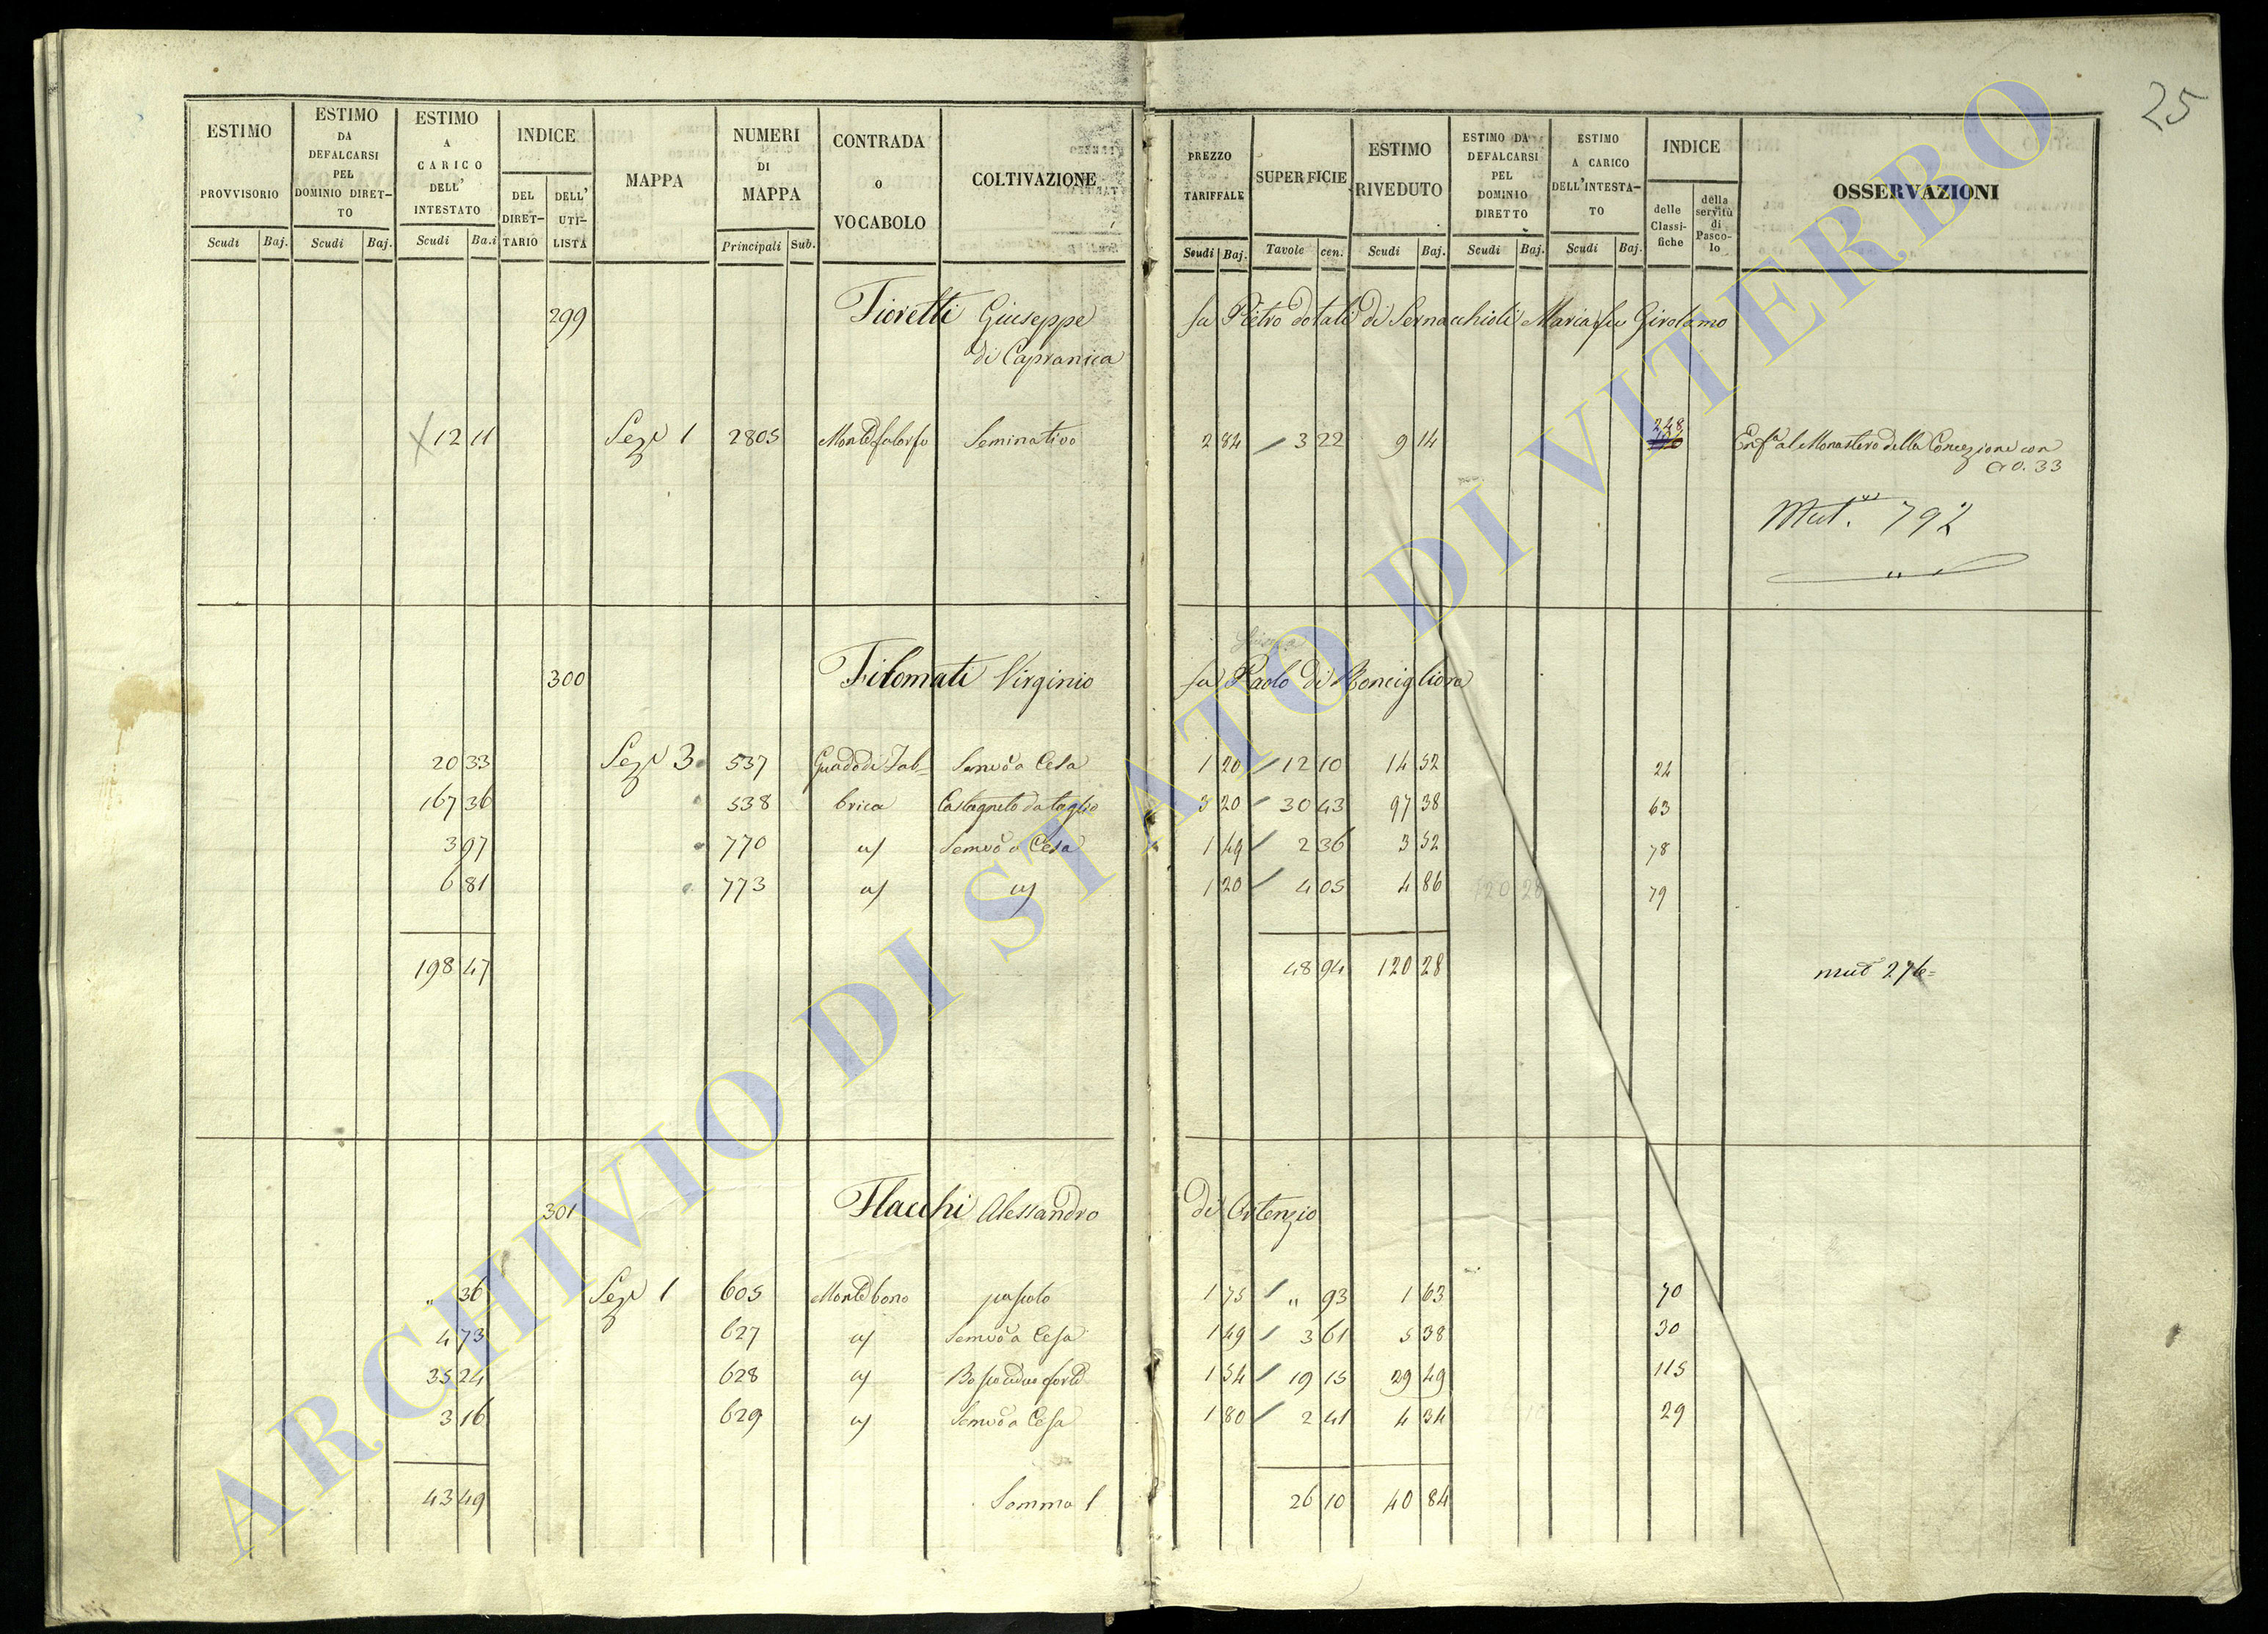 25
ESTIMO PROVVISORIO Scudi Baj.
ESTIMO DA DEFALCARSI PEL DOMINIO DIRETTO Scudi Baj.
ESTIMO A CARICO DELL' INTESTATO Scudi Ba.i
INDICE DEL DIRETTARIO DELL' UTILISTA
MAPPA
NUMERI DI MAPPA Principali Sub.
CONTRADA O VOCABOLO
COLTIVAZIONE
PREZZO TARIFFALE Scudi Baj.
SUPERFICIE Tavole cen.
ESTIMO RIVEDUTO Scudi Baj.
ESTIMO DA DEFALCARSI PEL DOMINIO DIRETTO Scudi Baj.
ESTIMO A CARICO DELL'INTESTATO Scudi Baj.
INDICE delle Classifiche della servitù di Pascolo
OSSERVAZIONI
299 Fioretti Giuseppe fu Pietro dotali di Sernacchioli Maria fu Girolamo
di Capranica
X 12 11 Sez. 1 2805 Seminativo 2 84 / 3 22 9 14 248 Enf.a al Monastero della Concezione con
a 0.33
Mut. 792
300 Filomati Virginio fu Paolo di Ronciglione
20 33 Sez. 3 537 Guado di Fab= Semvo a Cesa 1 20 / 12 10 14 52 24
167 36 538 brica Castagneto da taglio 3 20 / 30 43 97 38 63
3 97 770 Semvo a Cesa 1 49 / 2 36 3 52 78
6 81 773 1 20 / 4 05 4 86 120 28 79
198 47 48 94 120 28 mut 276=
301 Flacchi Alessandro di Ortenzio
" 36 Sez. 1 605 Monte bono pascolo 1 75 / " 93 1 63 70
4 73 627 Semvo a Cesa 1 49 / 3 61 5 38 30
35 24 628 Bosco ceduo forte 1 54 / 19 15 29 49 115
3 16 629 Semvo a Cesa 1 80 / 2 41 4 34 29
43 49 Somma 1 26 10 40 84
ARCHIVIO DI STATO DI VITERBO